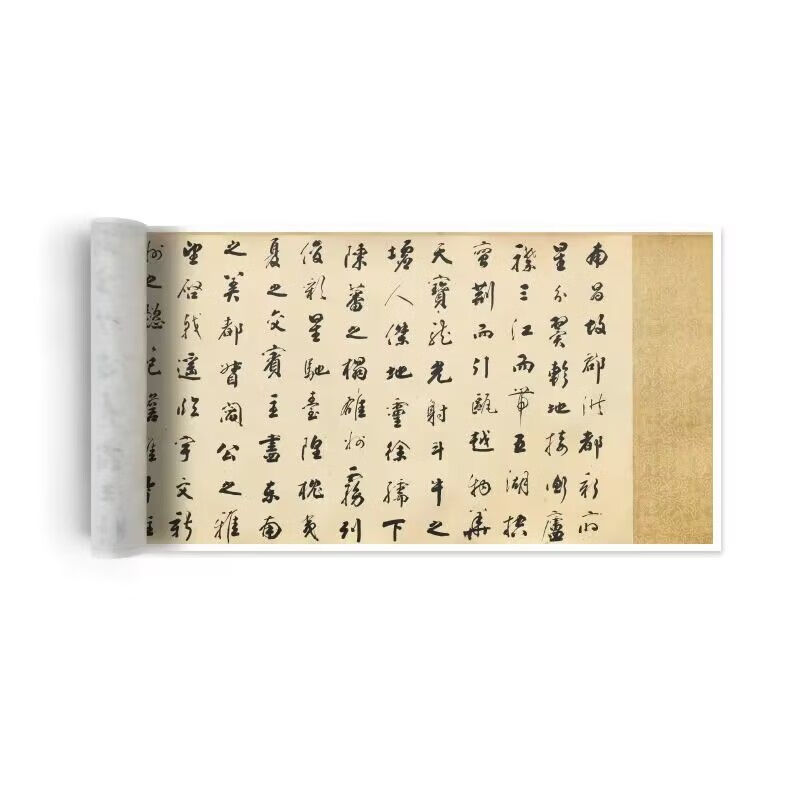 南昌故郡洪都新府
星分翼軫地接衡廬
襟三江而帶五湖控
蠻荊而引甌越物華
天寶龍光射斗牛之
墟人傑地靈徐孺下
陳蕃之榻雄州霧列
俊彩星馳臺隍枕夷
夏之交賓主盡東南
之美都督閻公之雅
望棨戟遙臨宇文新
州之懿